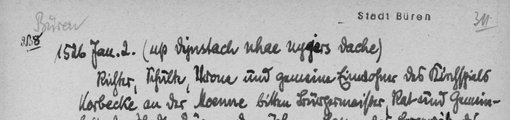 Büren
Stadt Büren
1526 Jan. 2. (up dynstach nhae nyjers dache)
Richter, Schulte, Krone und gemeine Einwohner des Kirchspiels
Korbecke an der Moenne bitten Bürgermeister, Rat und Gemein-